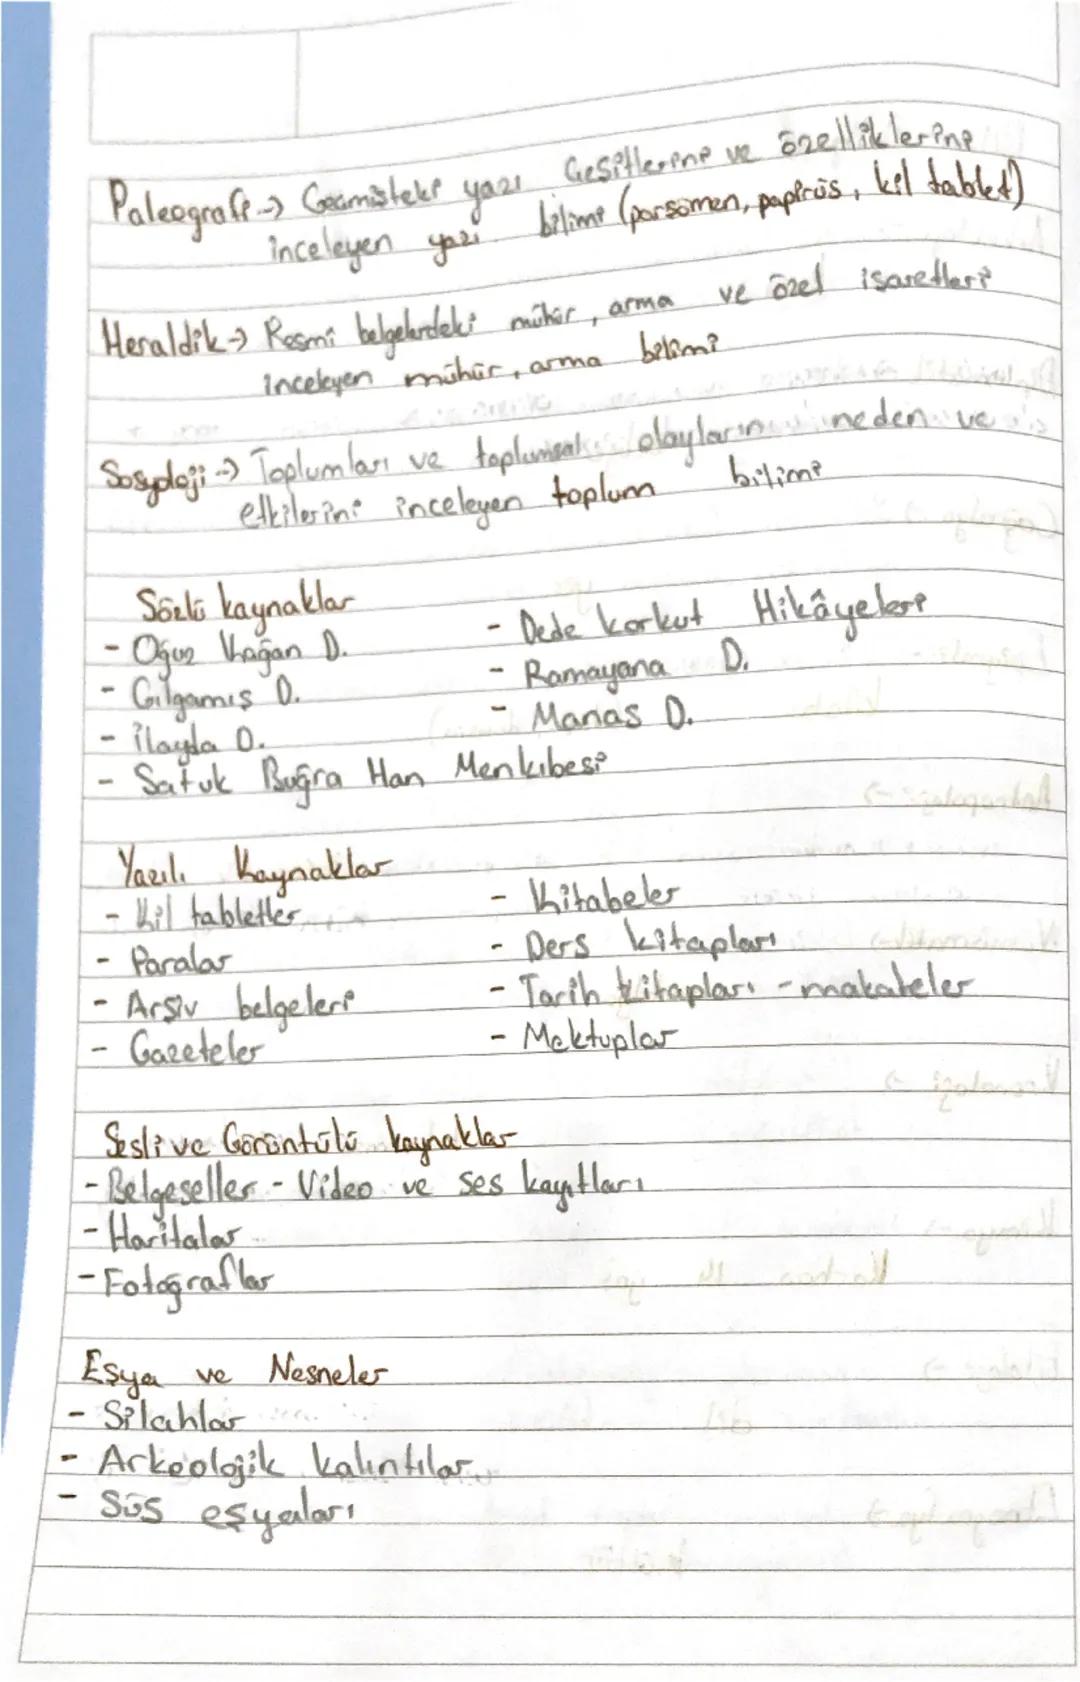 Paleografi → Geçmişteki yazı Çeşitlerini ve özelliklerini
inceleyen yazı bilimi (parşömen, papirüs, kil tablet)
Heraldik → Resmî belgelerdeki mühür, arma ve özel işaretleri
inceleyen mühür, arma bilimi
Sosyoloji → Toplumları ve toplumsal olayların neden ve
etkilerini inceleyen toplum bilimi
Sözlü kaynaklar
- Oğuz Kağan D. - Dede Korkut Hikâyeleri
- Gılgamış D. - Ramayana D.
- İlayda D. - Manas D.
- Satuk Buğra Han Menkıbesi
Yazılı Kaynaklar
- Kil tabletler - Kitabeler
- Paralar - Ders kitapları
- Arşiv belgeleri - Tarih kitapları - makaleler
- Gazeteler - Mektuplar
Sesli ve Görüntülü kaynaklar
- Belgeseller - Video ve ses kayıtları
- Haritalar
- Fotoğraflar
Eşya ve Nesneler
- Silahlar
- Arkeolojik kalıntılar
- Süs eşyaları